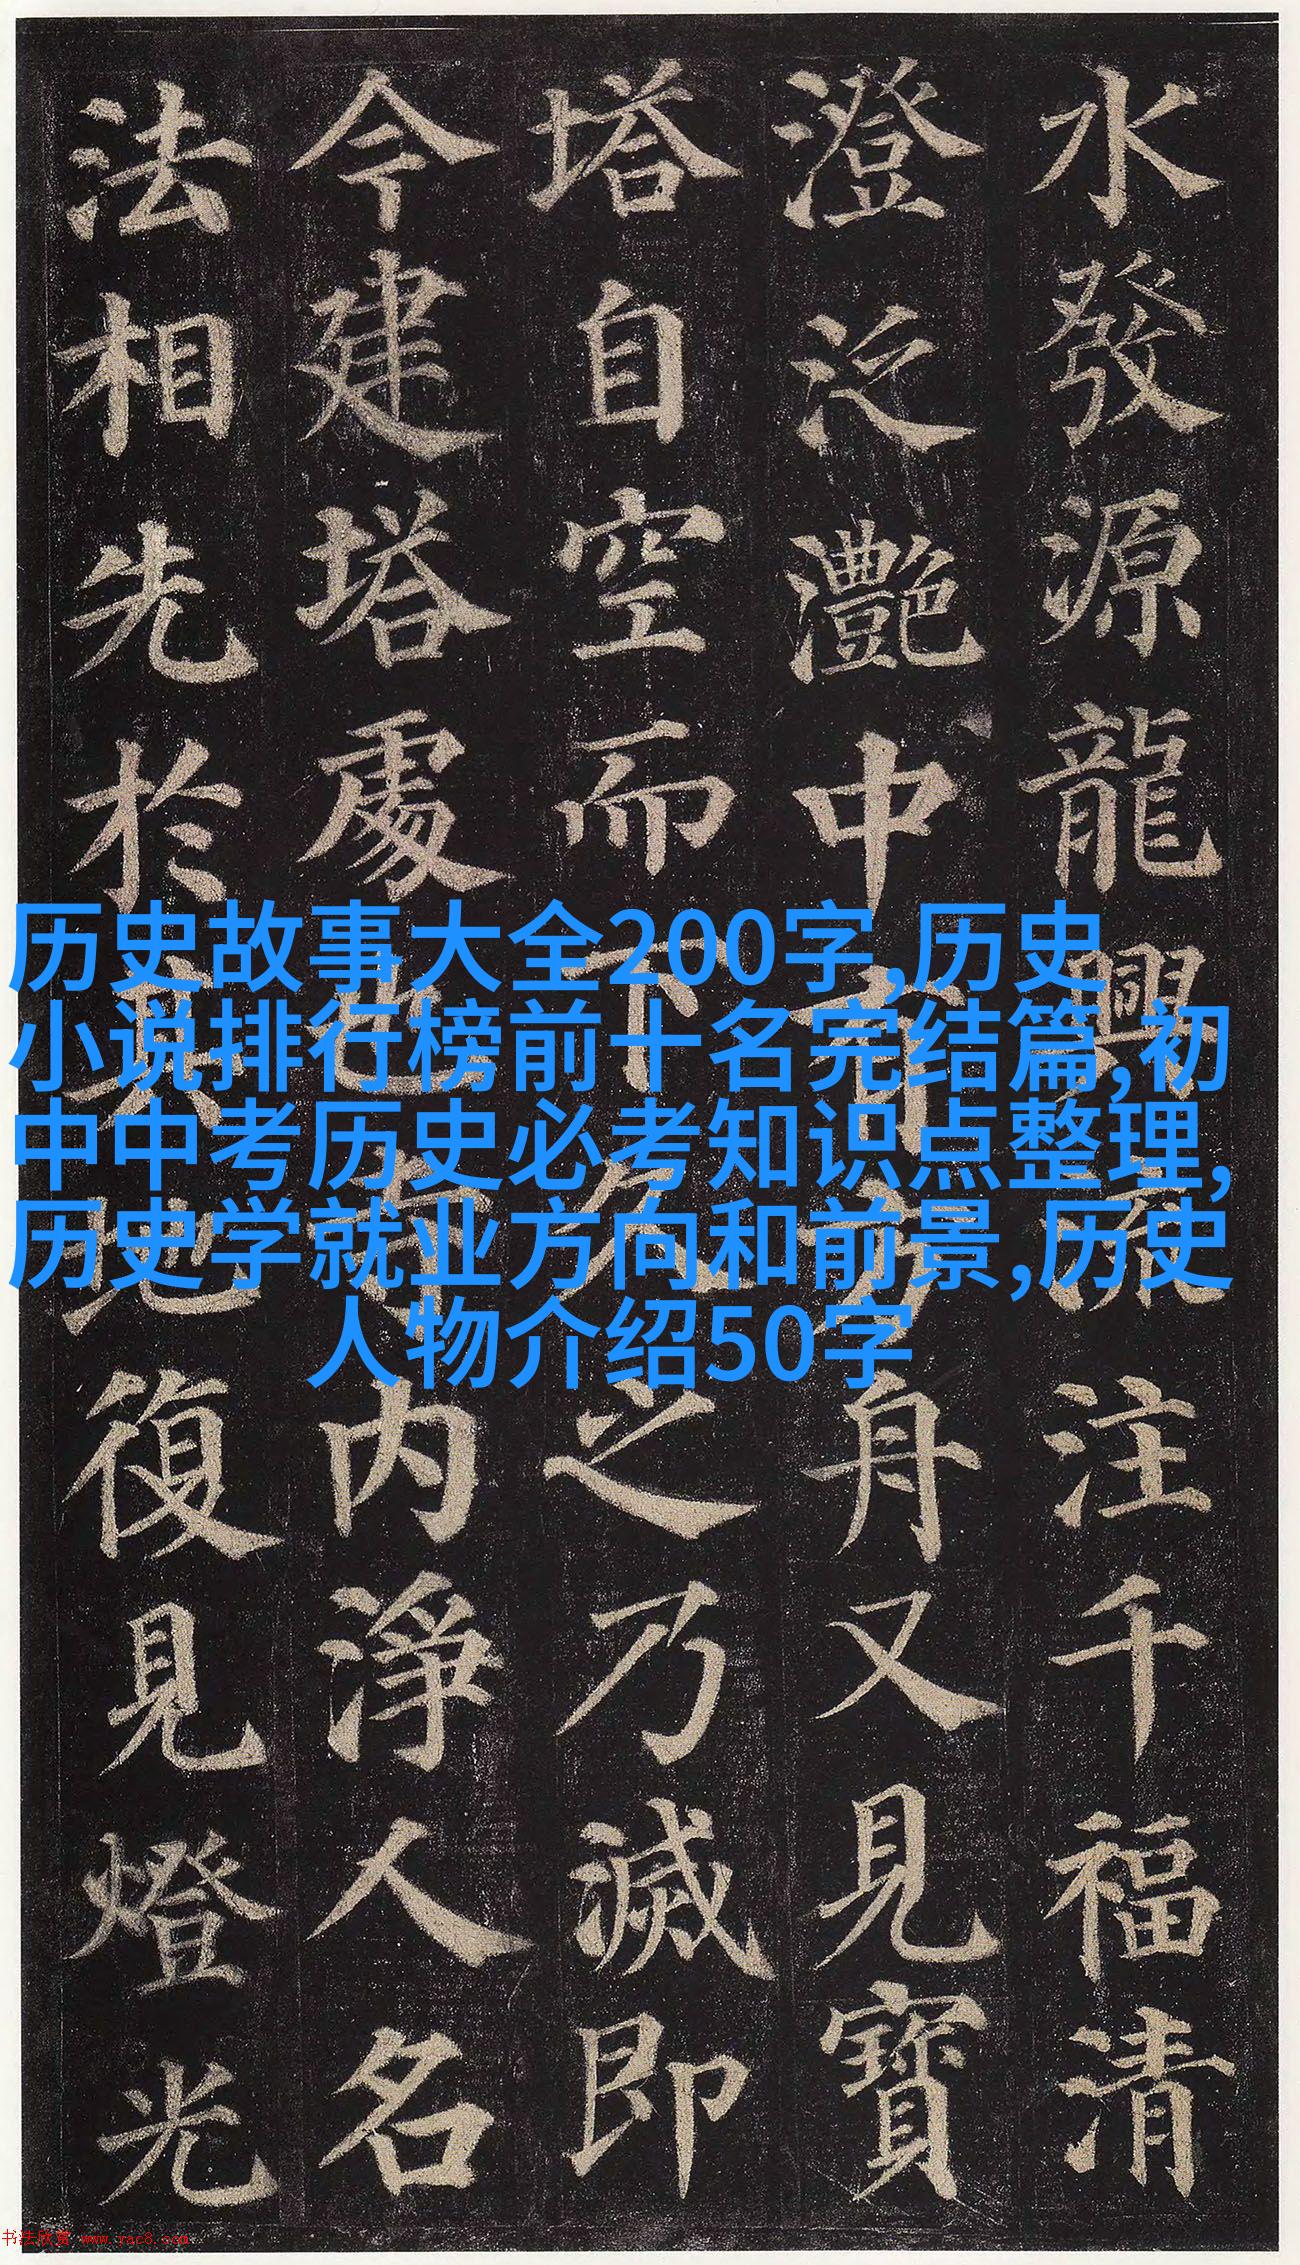 水發源龍興流注千福清
澄泛灩中有方舟又見寶
塔自空而下久之乃滅即
今建塔處也寺内淨人名
法相先於其地復見燈光
历史故事大全200字,历史
小说排行榜前十名完结篇,初
中中考历史必考知识点整理,
历史学就业方向和前景,历史
人物介绍50字
书法欣赏 www.yac8.com